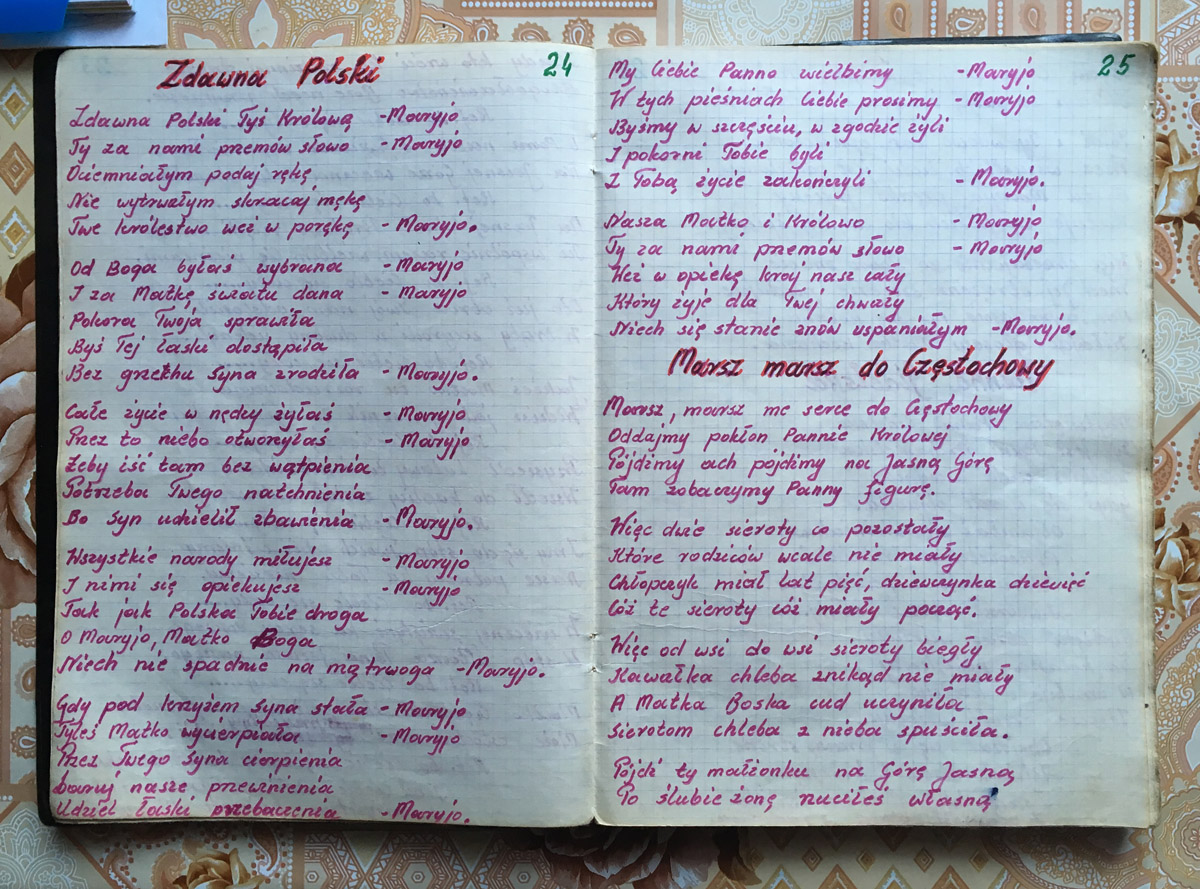 Zdawna Polski
24
Zdawna Polski Tyś Królową - Maryjo
Ty za nami przemów słowo - Maryjo
Ociemniałym podaj rękę
Nie wytrwałym skracaj mękę
Twe królestwo weź w porękę - Maryjo.
Od Boga byłaś wybrana - Maryjo
I za Matkę światu dana - Maryjo
Pokora Twoja sprawiła
Byś Tej łaski dostąpiła
Bez grzechu Syna zrodziła - Maryjo.
Całe życie w nędzy żyłaś - Maryjo
Przez to niebo otworzyłaś - Maryjo
Żeby iść tam bez wątpienia
Potrzeba Twego natchnienia
Bo Syn udzielił zbawienia - Maryjo.
Wszystkie narody miłujesz - Maryjo
I nimi się opiekujesz - Maryjo
Tak jak Polska Tobie droga
O Maryjo, Matko Boga
Niech nie spadnie na nią trwoga - Maryjo.
Gdy pod krzyżem Syna stała - Maryjo
Tyleś Matko wycierpiała - Maryjo
Przez Twego Syna cierpienia
Daruj nasze przewinienia
Udziel łaski przebaczenia - Maryjo.
25
My Ciebie Panno wielbimy - Maryjo
W tych pieśniach Ciebie prosimy - Maryjo
Byśmy w szczęściu, w zgodzie żyli
I pokorni Tobie byli
Z Tobą życie zakończyli - Maryjo.
Nasza Matko i Królowo - Maryjo
Ty za nami przemów słowo - Maryjo
Weź w opiekę kraj nasz cały
Który żyje dla Twej chwały
Niech się stanie znów wspaniałym - Maryjo.
Marsz marsz do Częstochowy
Marsz, marsz me serce do Częstochowy
Oddajmy pokłon Pannie Królowej
Pójdźmy ach pójdźmy na Jasną Górę
Tam zobaczymy Panny figurę.
Więc dwie sieroty co pozostały
Które rodziców wcale nie miały
Chłopczyk miał lat pięć, dziewczynka dziewięć
Cóż te sieroty cóż miały począć.
Więc od wsi do wsi sieroty biegły
Kawałka chleba znikąd nie miały
A Matka Boska cud uczyniła
Sierotom chleba z nieba spuściła.
Pójdź ty małżonku na Górę Jasną
Po ślubie żonę rzuciłeś własną